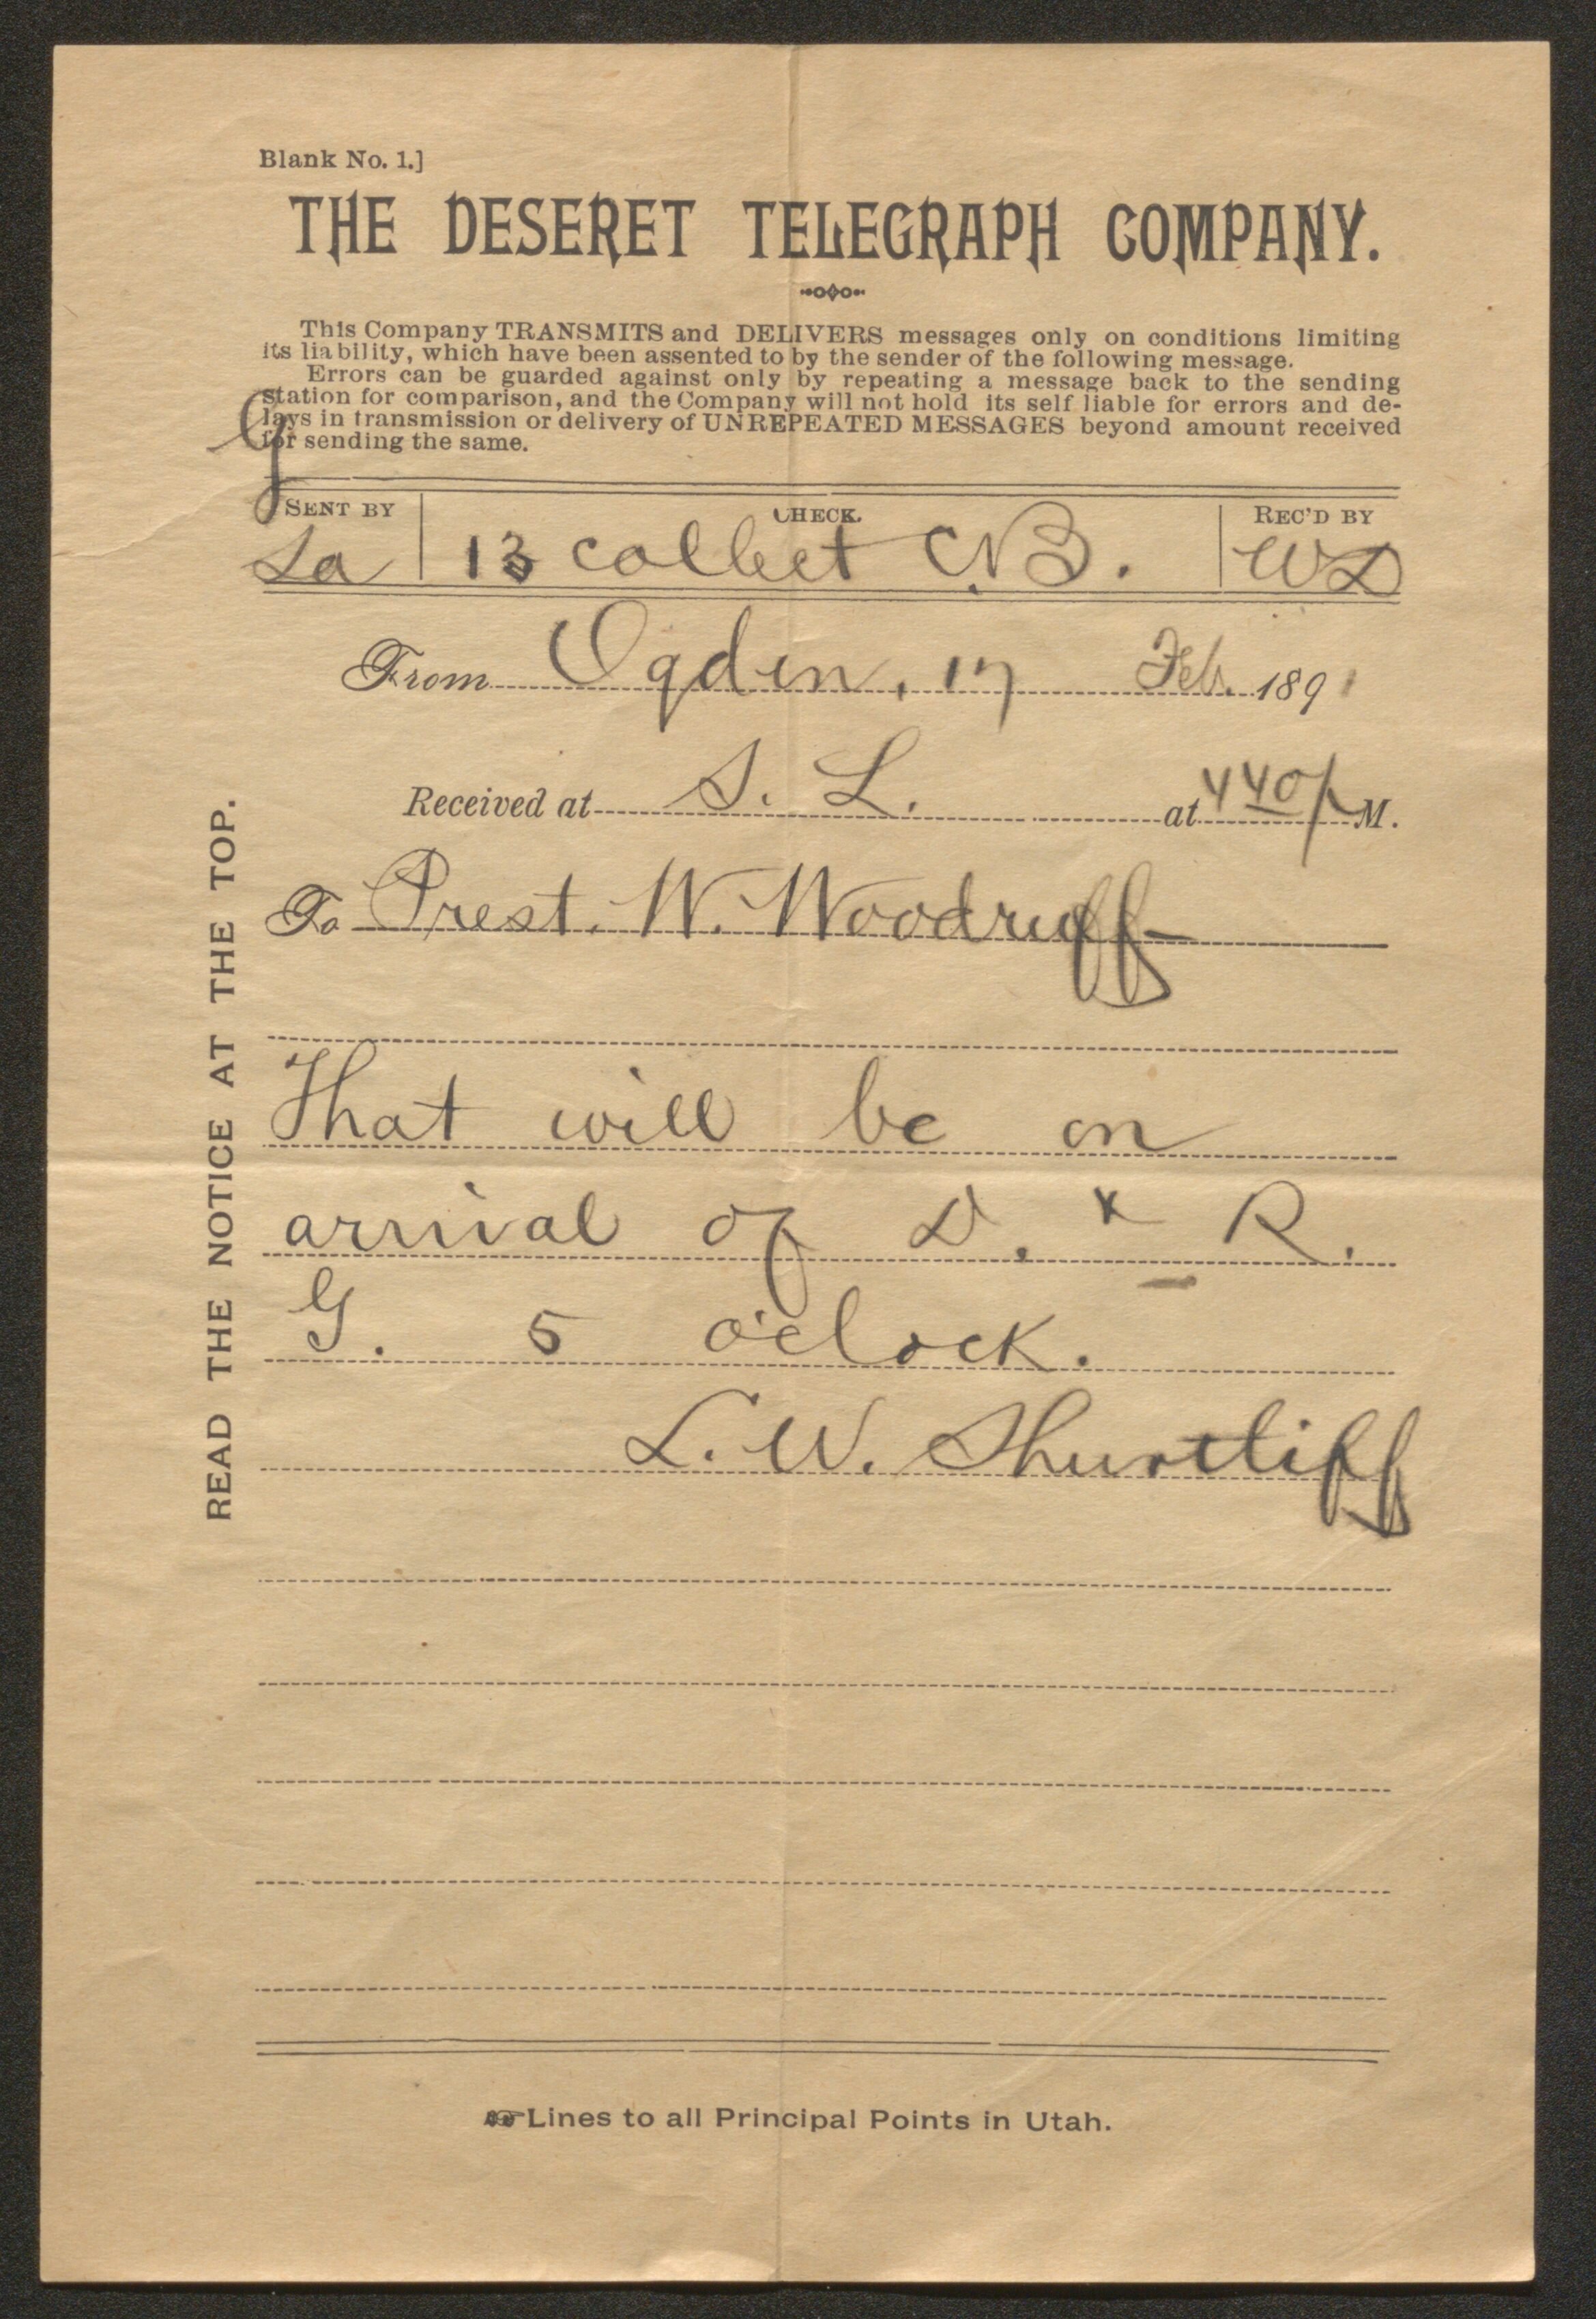 Blank No. 1.]
THE DESERET TELEGRAPH COMPANY.
This Company TRANSMITS and DELIVERS messages only on conditions limiting
its liability, which have been assented to by the sender of the following message.
Errors can be guarded against only by repeating a message back to the sending
station for comparison, and the Company will not hold its self liable for errors and de-
lays in transmission or delivery of UNREPEATED MESSAGES beyond amount received
for sending the same.
G
SENT BY CHECK. REC'D BY
Sa 13 collect NB. WD
From Ogden, 17 Feb. 1891
Received at S. L. at 440 P M.
To Prest. W. Woodruff
That will be on
arrival of D. & R.
G. 5 o'clock.
L. W. Shurtliff
READ THE NOTICE AT THE TOP.
☞Lines to all Principal Points in Utah.